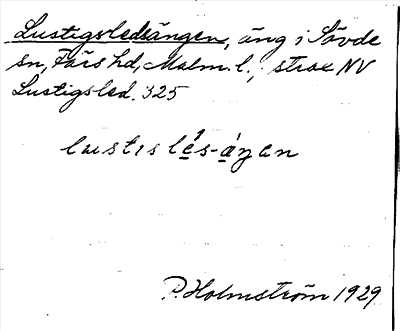 Lustigsledsängen, äng i Sövde
sn, Färs hd, Malm. l., strax NV
Lustigsled. 325
lustislés-áŋan
P. Holmström 1929